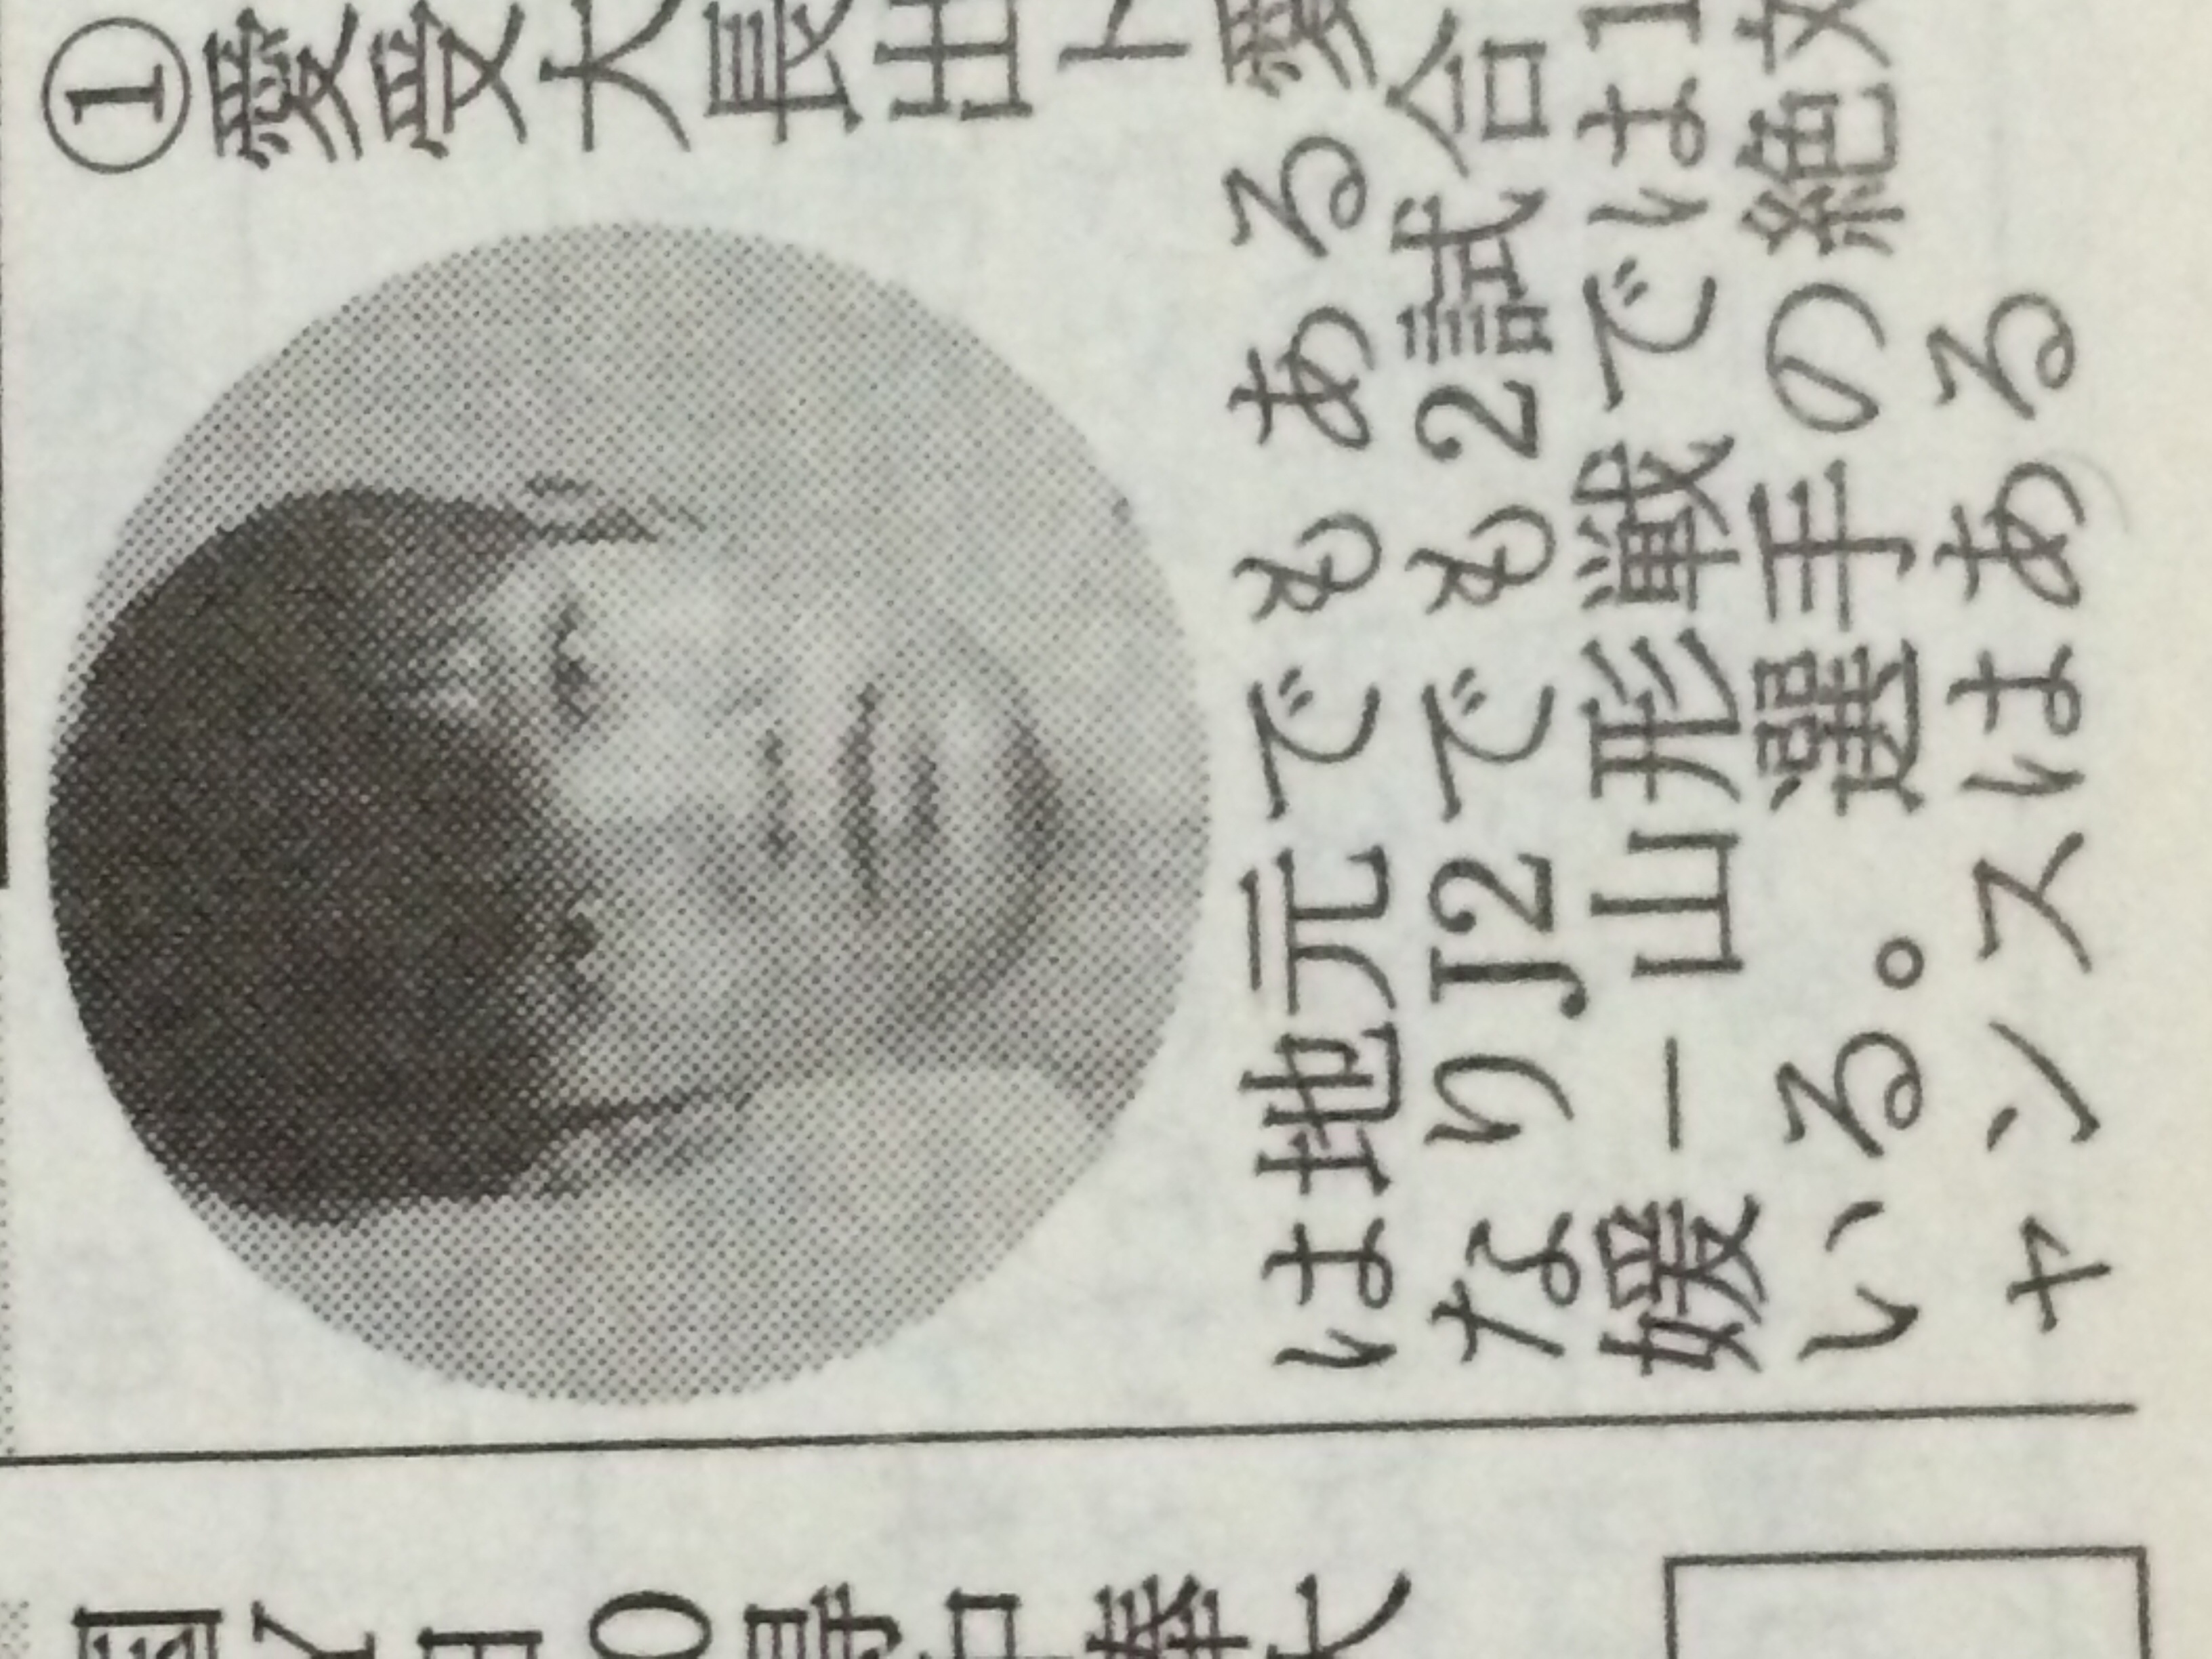 ①
愛
受
大
長
出
ト
は地元でもある愛
なりJ2でも2試合
媛－山形戦では1
いる。 選手の絶
ャンスはある
0